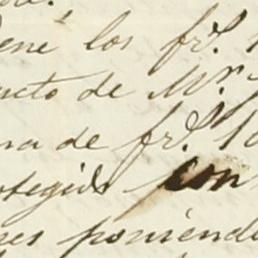 ene los fr.
ucto de Mr.
na de fr. 10
otegido con
nes poniendo